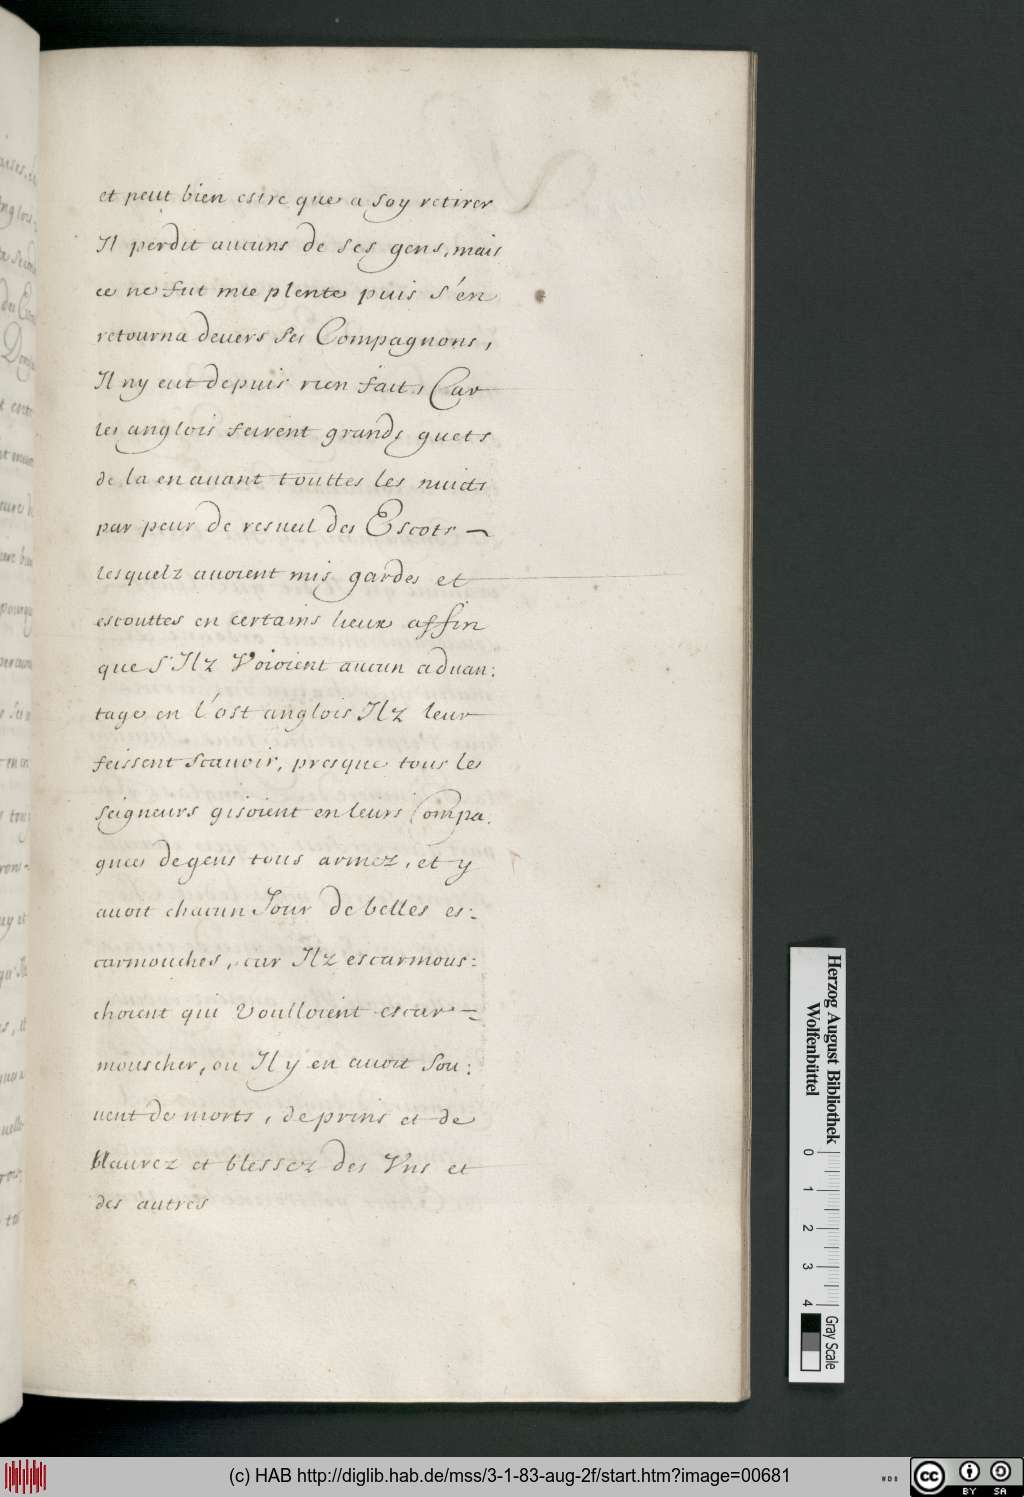 et peut bien estre que a soy retirer
Il perdit aucuns de ses gens, mais
ce ne fut mie plente puis s'en
retourna devers ses Compagnons,
Il ny eut depuis rien fait, Car
les anglois feirent grands guets
de la en avant touttes les nuicts
par peur de resueil des Escots –
lesquelz avoient mis gardes et
escouttes en certains lieux affin
que s'Ilz Voioient aucun aduan:
tage en l'ost anglois Ilz leur
feissent scauoir, presque tous les
seigneurs gisoient en leurs Compa.
gnees de gens tous armez, et y
avoit chacun Jour de belles es:
carmouches, car Ilz escarmous:
choient qui Voulloient escar=
mouscher, ou Il y en avoit sou:
vent de morts, de prins et de
Naurez et blessez des Vns et
des autres
Herzog August Bibliothek
Wolfenbüttel
0 1 2 3 4
Gray Scale
(c) HAB http://diglib.hab.de/mss/3-1-83-aug-2f/start.htm?image=00681
WDB
cc BY SA